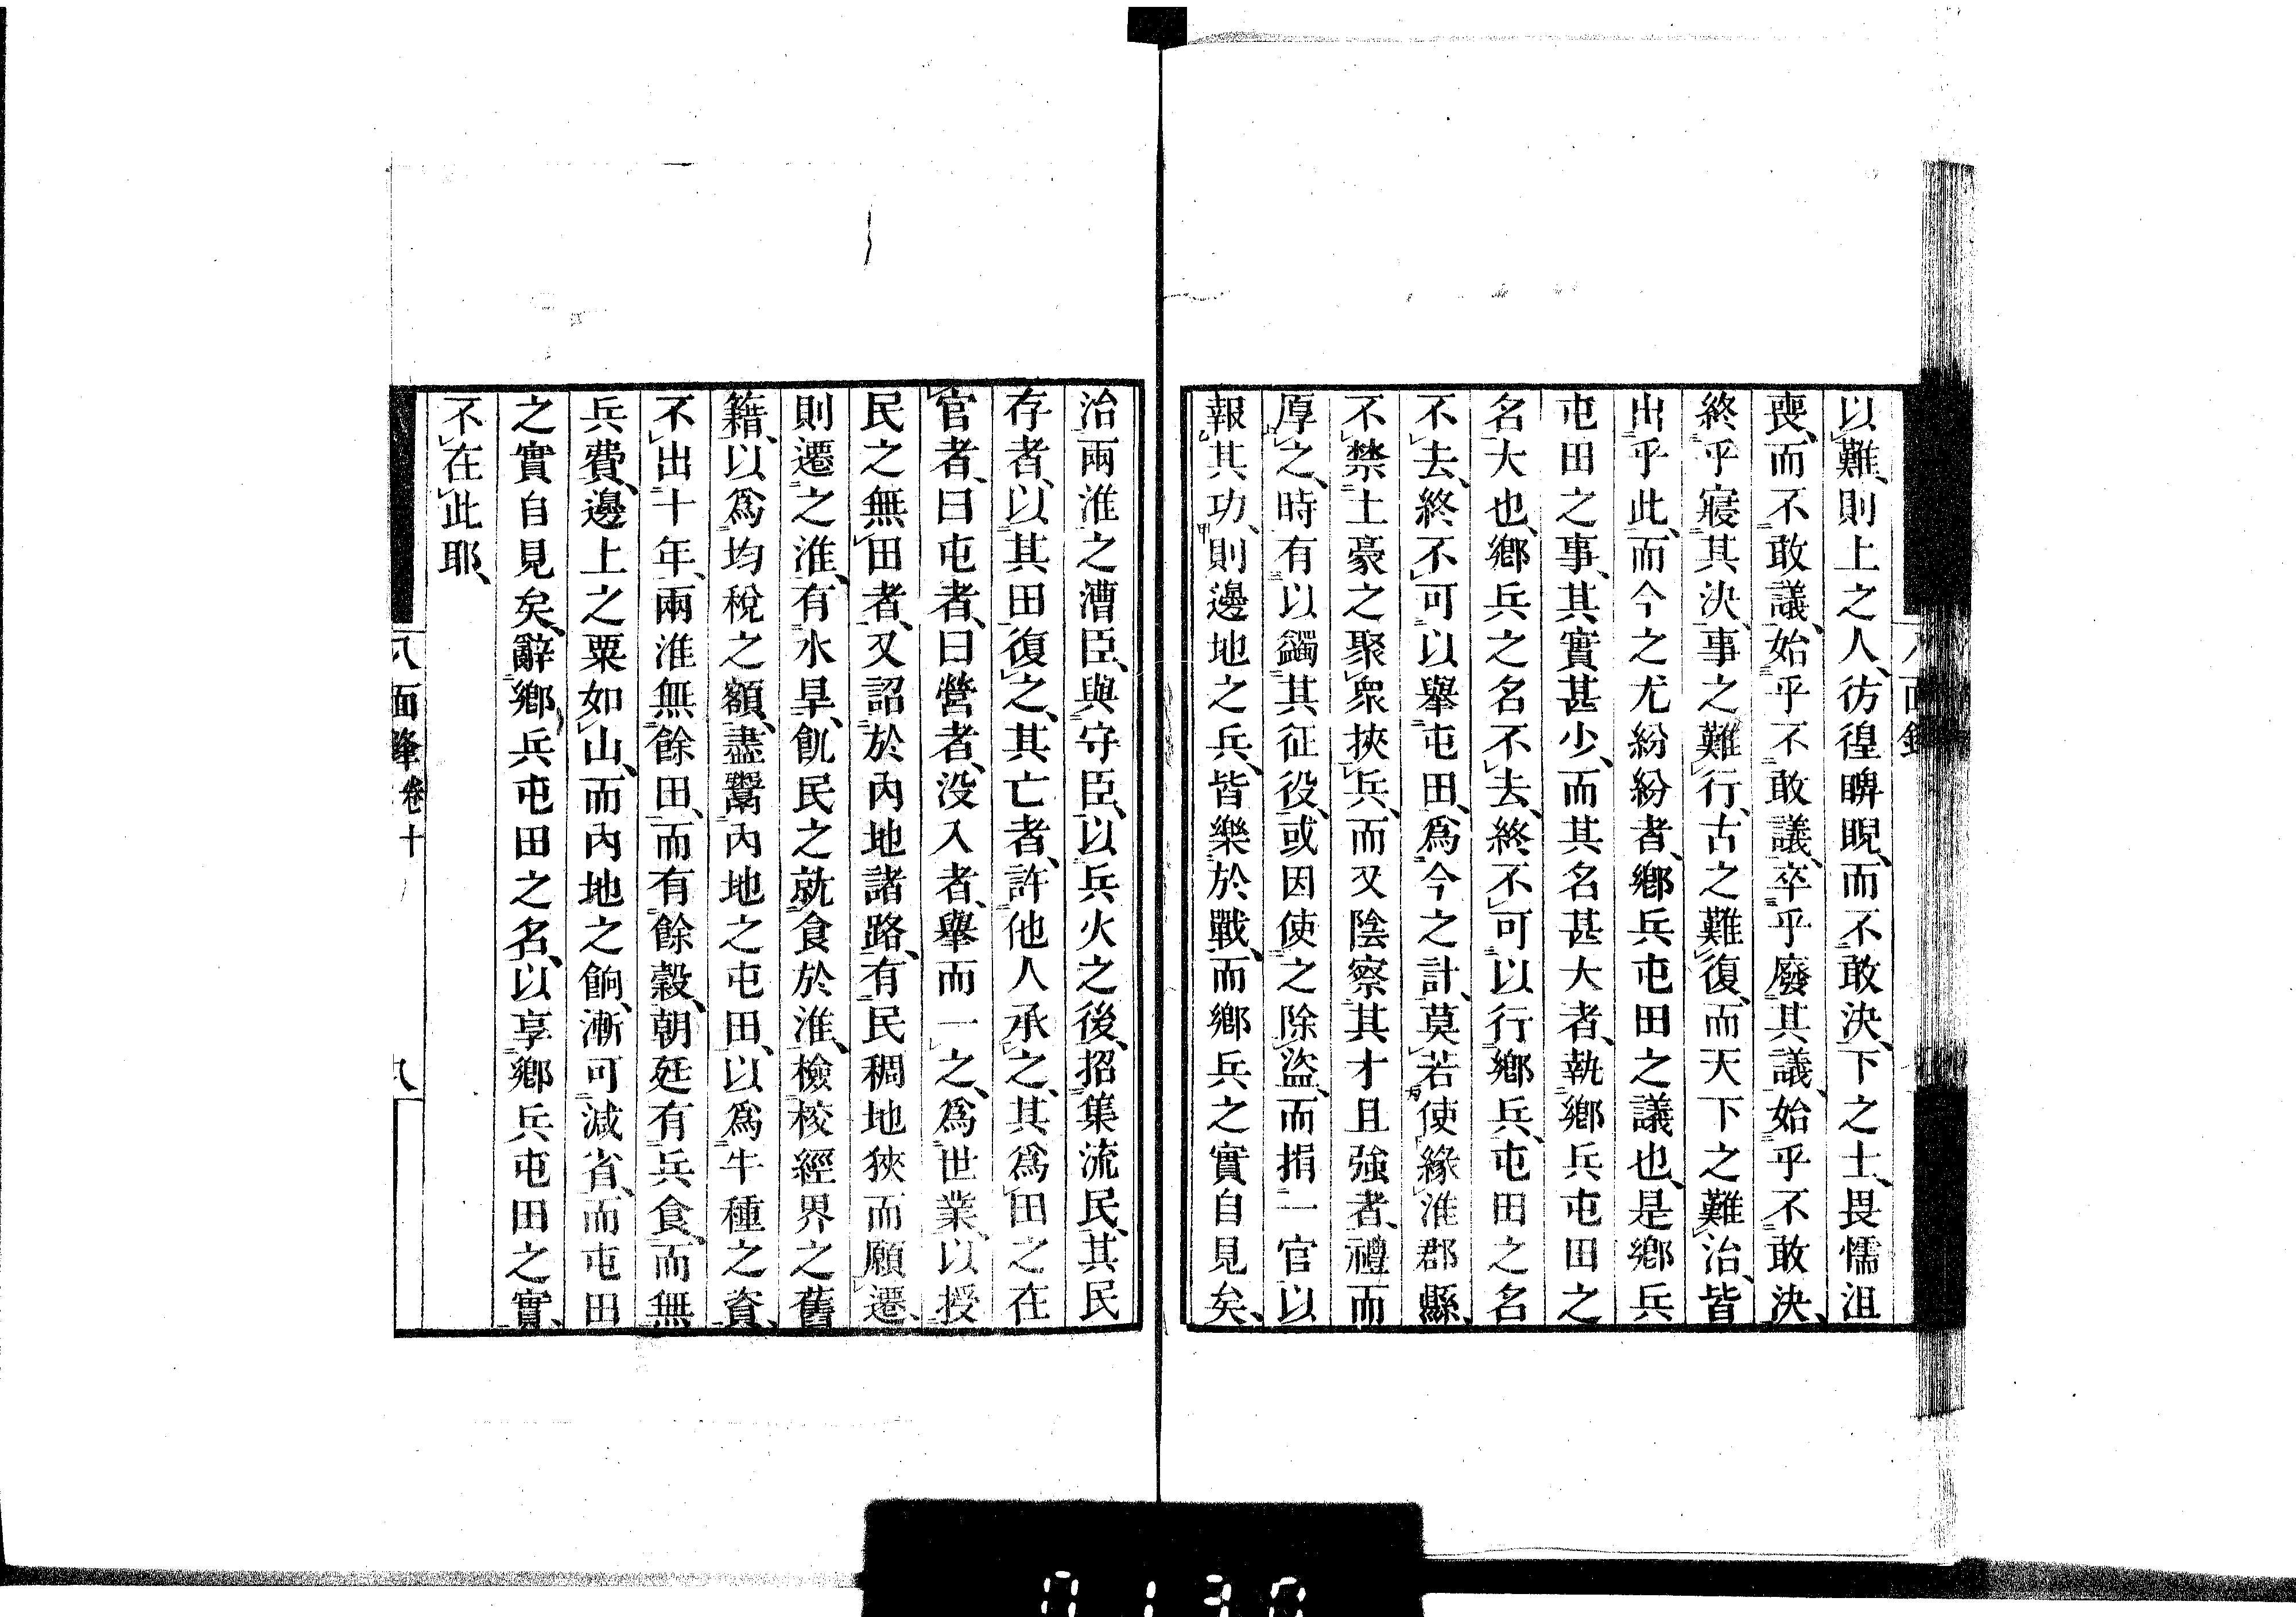 以難、則上之人、彷徨睥睨、而不敢決、下之士、畏懦沮
喪、而不敢議、始乎不敢議、卒乎廢其議、始乎不敢決、
終乎寢其決、事之難行、古之難復、而天下之難治、皆
出乎此、而今之尤紛紛者、鄉兵屯田之議也、是鄉兵
屯田之事、其實甚少、而其名甚大者、執鄉兵屯田之
名大也、鄉兵之名不去、終不可以行鄉兵、屯田之名
不去、終不可以舉屯田、爲今之計、莫若使緣淮郡縣、
不禁土豪之聚衆挾兵、而又陰察其才且強者、禮而
厚之、時有以蠲其征役、或因使之除盜、而捐一官以
報其功、則邊地之兵、皆樂於戰、而鄉兵之實自見矣、
治兩淮之漕臣、與守臣、以兵火之後、招集流民、其民
存者、以其田復之、其亡者、許他人承之、其爲田之在
官者、曰屯者、曰營者、没入者、舉而一之、爲世業、以授
民之無田者、又詔於內地諸路、有民稠地狹而願遷、
則遷之淮、有水旱、飢民之就食於淮、檢校經界之舊
籍、以爲均稅之額、盡鬻內地之屯田、以爲牛種之資、
不出十年、兩淮無餘田、而有餘穀、朝廷有兵食、而無
兵費、邊上之粟如山、而內地之餉、漸可減省、而屯田
之實自見矣、辭鄉兵屯田之名、以享鄉兵屯田之實、
不在此耶、
八面鋒 卷十 八